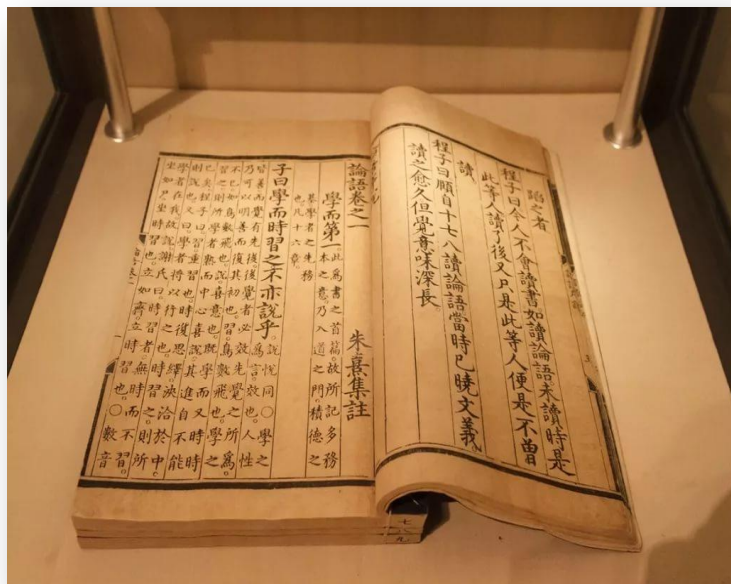 蹈之者
程子曰今人不會讀書如讀論語未讀時是
此等人讀了後又只是此等人便是不曾
讀
程子曰頤自十七八讀論語當時已曉文義
讀之愈久但覺意味深長
論語卷之一 朱熹集註
學而第一 此為書之首篇。故所記多務
本之意乃入道之門。積德之
基學者之先務
也凡十六章
子曰學而時習之不亦說乎。 說悅同〇學之
為言效也。人性
皆善而覺有先後後覺者必效先覺之所為。
乃可以明善而復其初也。習鳥數飛也。學之
不已如鳥數飛也。說喜意也。既學而又時時
習之則所學者熟而中心喜說其進自不能
已矣程子曰習重習也。時復思繹浹洽於中。
則說也又曰學者將以行之也時習之則所
學者在我故說謝氏曰時習者無時而不習。
坐如尸坐時習也立如齊立時習也。〇數音
七八九